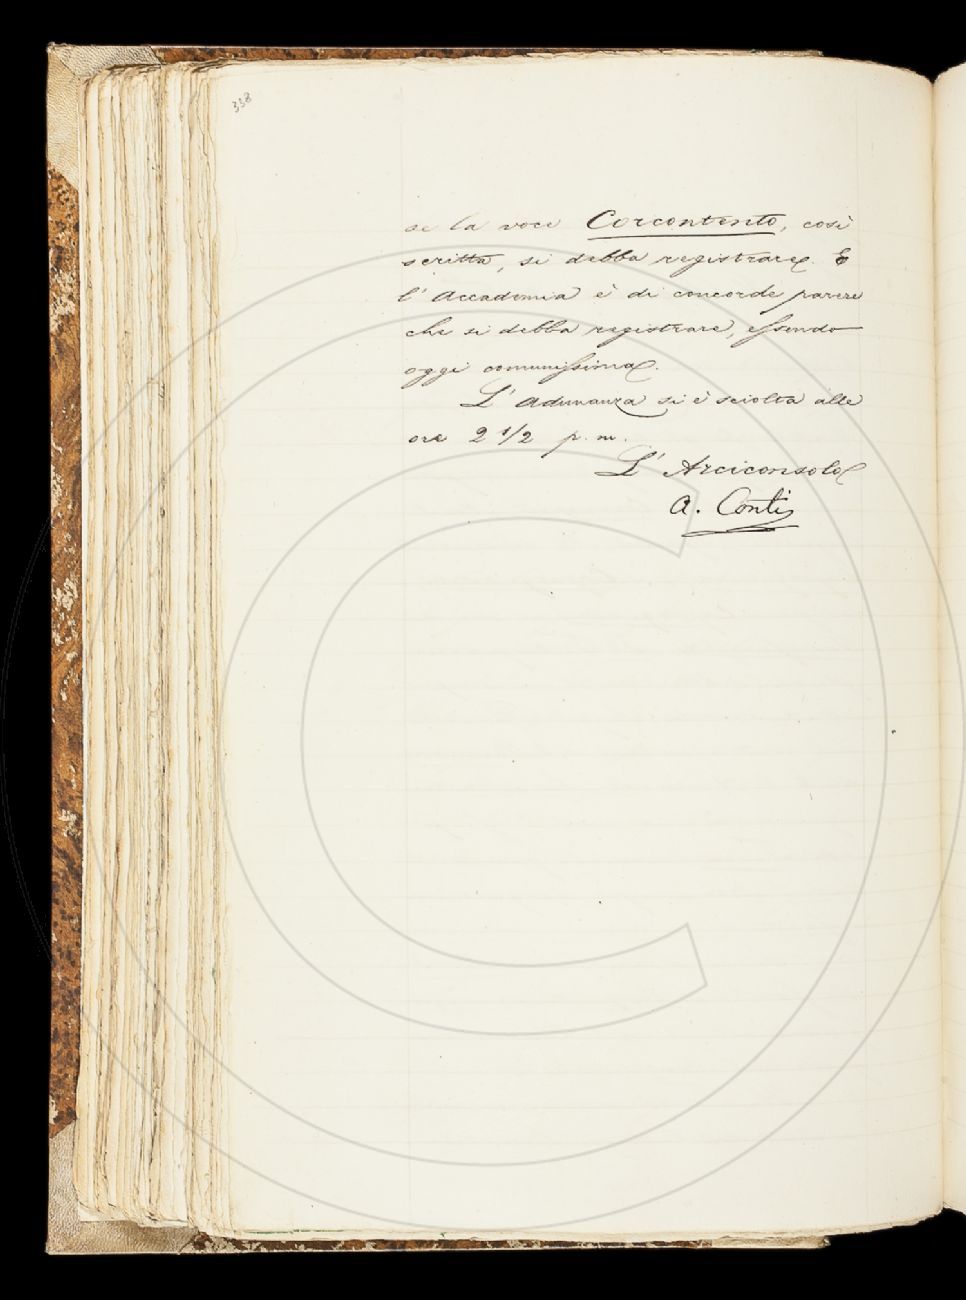 338
se la voce Corcontento, così
scritta, si debba registrare. E
l'Accademia è di concorde parere
che si debba registrare, essendo
oggi comunissima.
L'Adunanza si è sciolta alle
ore 2 1/2 p. m.
L'Arciconsolo
A. Conti